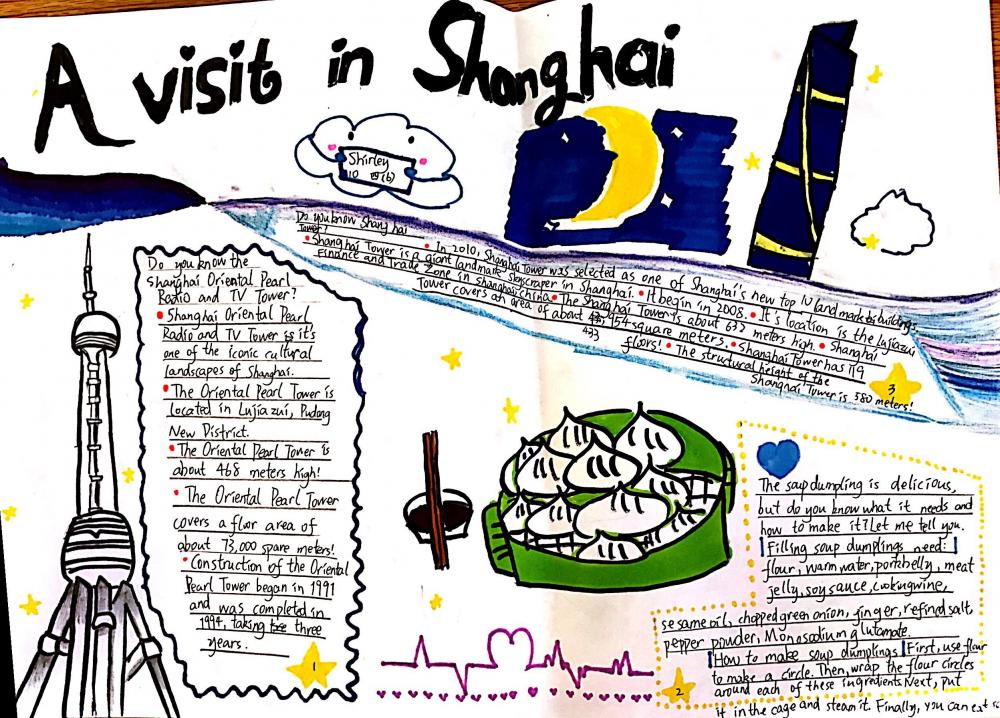 A visit in Shanghai
Shirley
10 四(6)
Do you know Shanghai
Tower?
• In 2010, Shanghai Tower was selected as one of Shanghai's new top 10 landmarks buildings
• Shanghai Tower is a giant landmark skyscraper in Shanghai. • It begin in 2008. • It's location is the Lujiazui
Finance and Trade Zone in Shanghai china • The Shanghai Tower is about 632 meters high. • Shanghai
Tower covers an area of about 433,954 square meters. • Shanghai Tower has 119
433
floors! • The structural height of the
Shanghai Tower is 580 meters!
3
Do you know the
Shanghai Oriental Pearl
Radio and TV Tower?
• Shanghai Oriental Pearl
Radio and TV Tower is it's
one of the iconic cultural
landscapes of Shanghai.
• The Oriental Pearl Tower is
located in Lujiazui, Pudong
New District.
• The Oriental Pearl Tower is
about 468 meters high!
• The Oriental Pearl Tower
covers a floor area of
about 73,000 spare meters!
• Construction of the Oriental
Pearl Tower began in 1991
and was completed in
1994, taking three
years.
1
The soup dumpling is delicious,
but do you know what it needs and
how to make it? Let me tell you.
Filling soup dumplings need:
flour, warm water, porkbelly, meat
jelly, soy sauce, cookingwine,
sesame oil, chopped green onion, ginger, refind salt,
pepper powder, Monosodium glutamate.
How to make soup dumplings First, use flour
to make a circle. Then, wrap the flour circles
around each of these ingredients. Next, put
it in the cage and steam it. Finally, you can eat
2